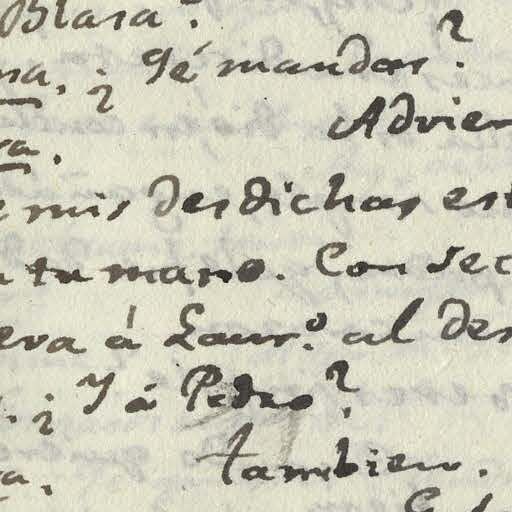 Blasa?
na. ¿Qé mandas?
Advier
ra.
e mis desdichas est
n tu mano. Con sec
eva á Laur.º al des
¿Y á Pedro?
Tambien.
a.